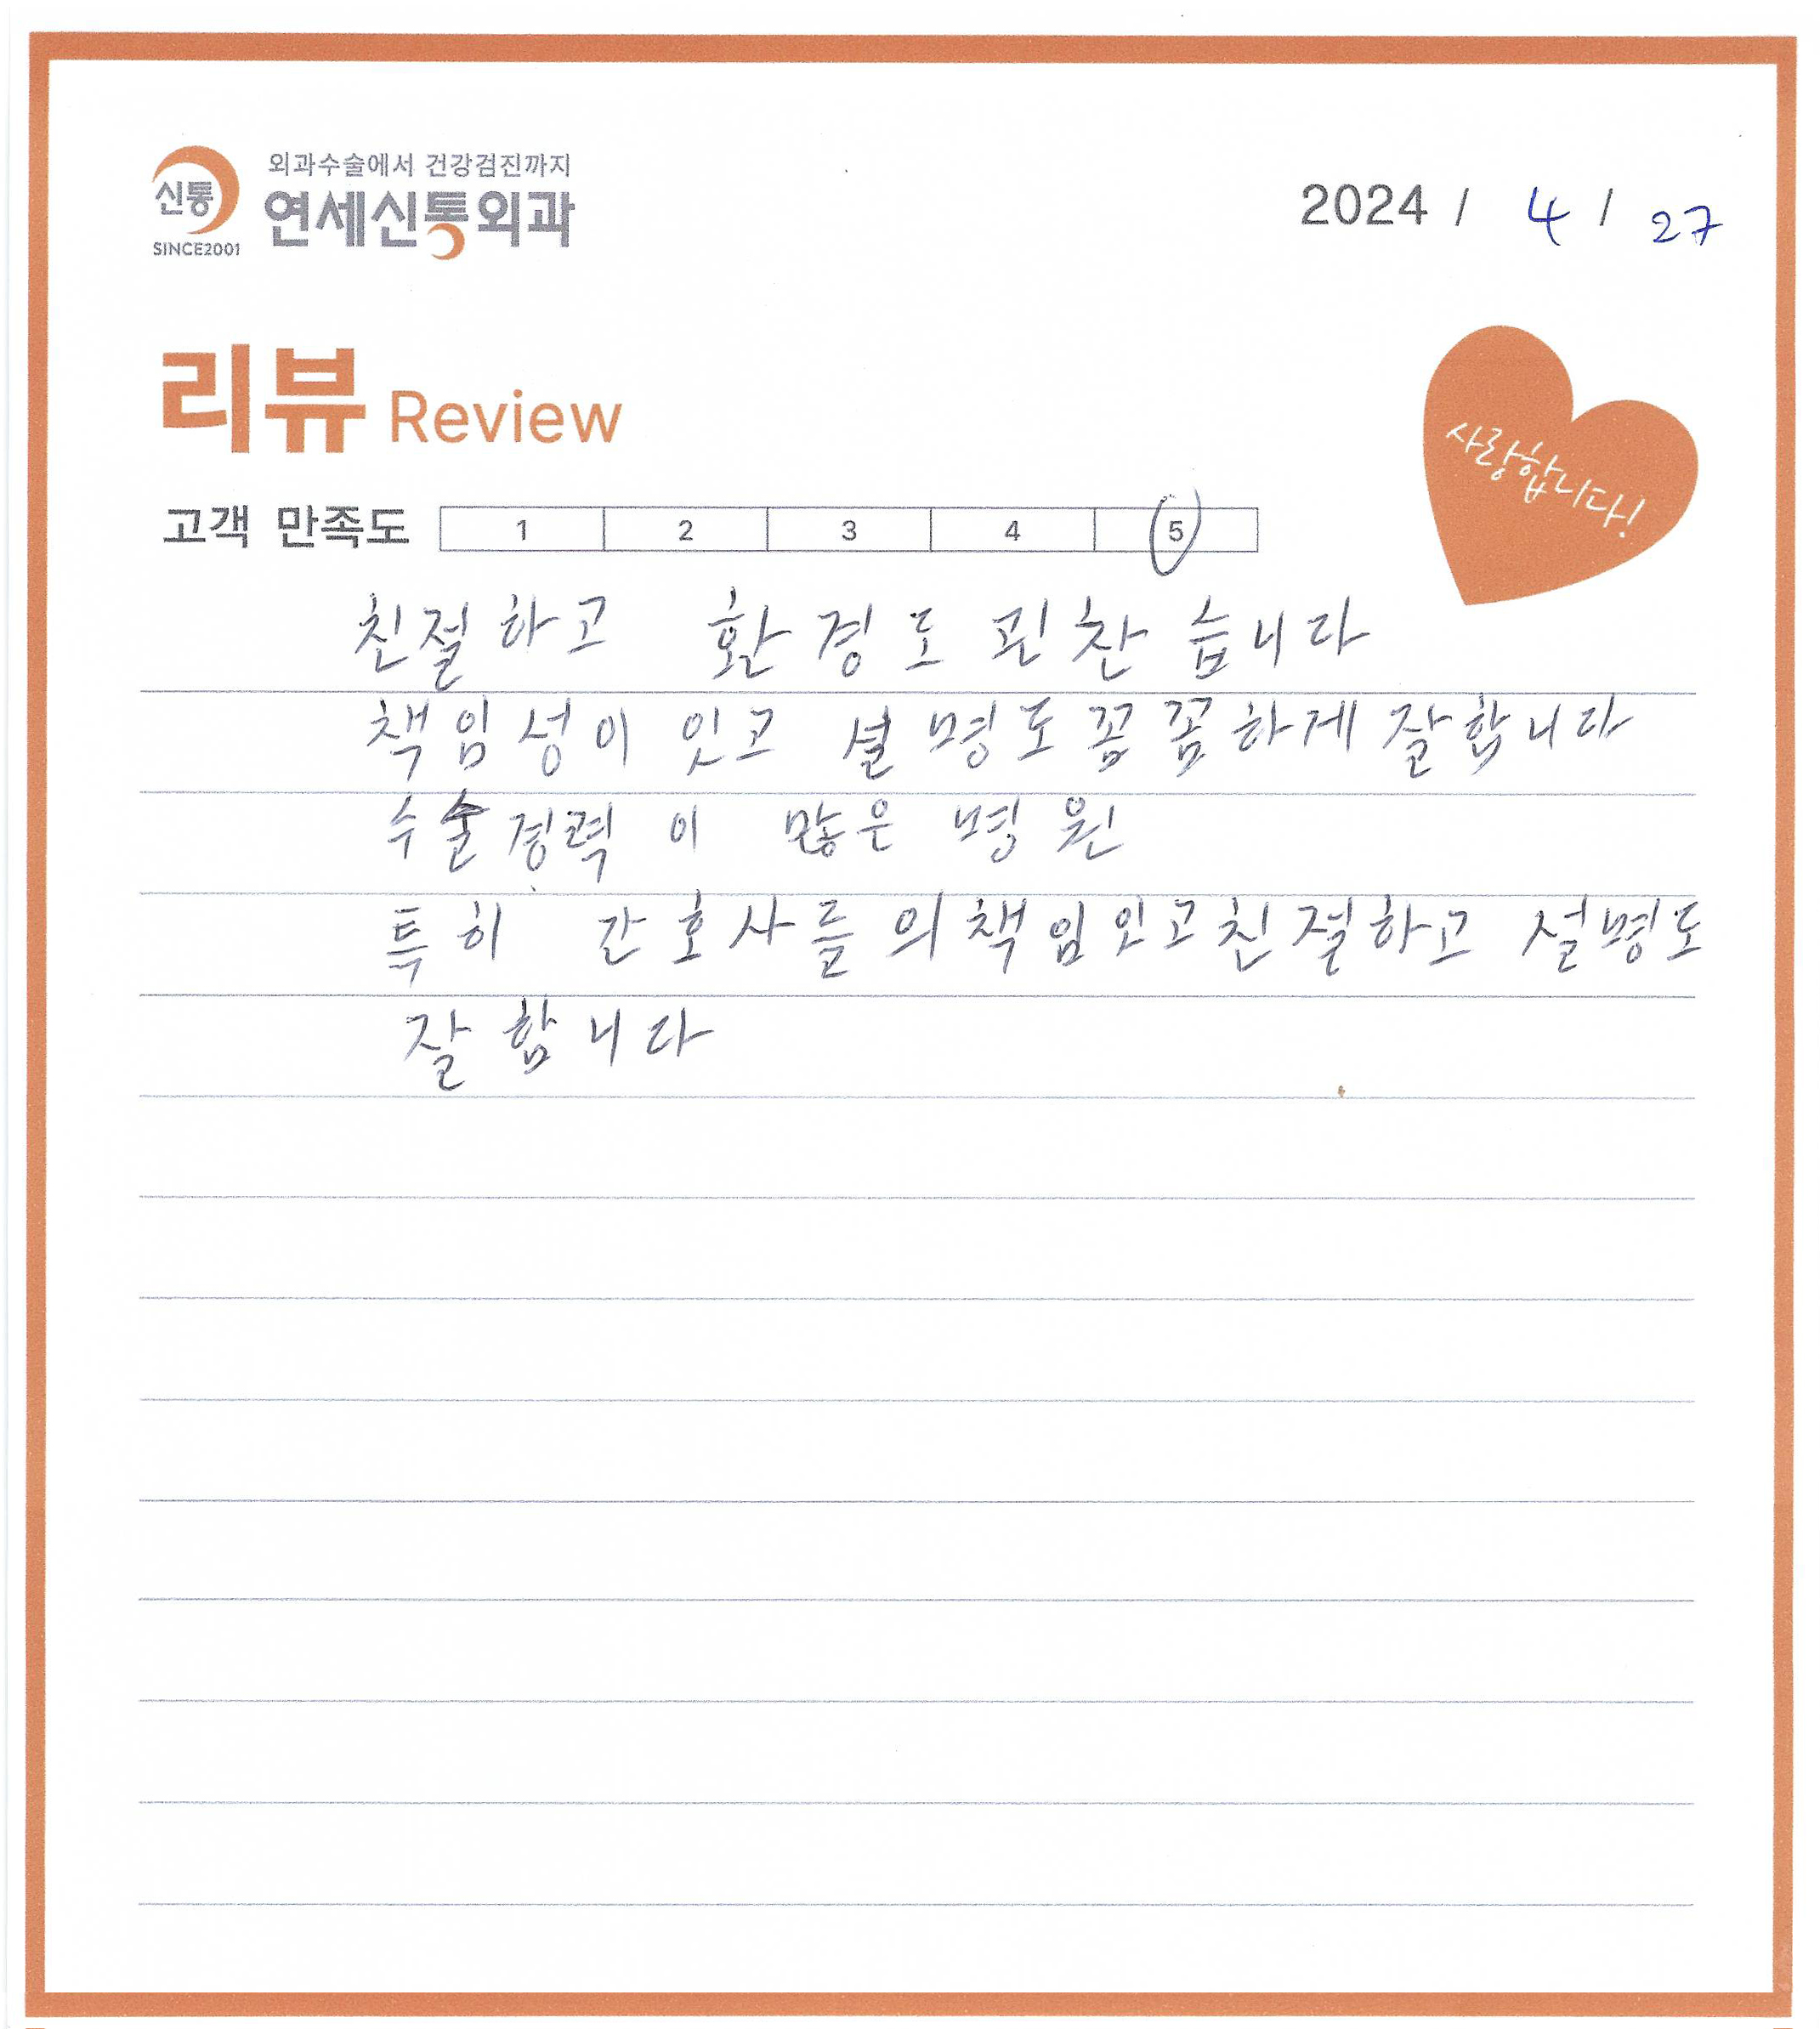 외과수술에서 건강검진까지
신통 연세신통외과
SINCE2001
2024 / 4 / 27
리뷰 Review
사랑합니다!
고객 만족도 1 2 3 4 5
친절하고 환경도 괸찬습니다
책임성이 잇고 설명도 꼼꼼하게 잘합니다
수술경력이 많은 병원
특히 간호사들의 책임잇고 친절하고 설명도
잘합니다